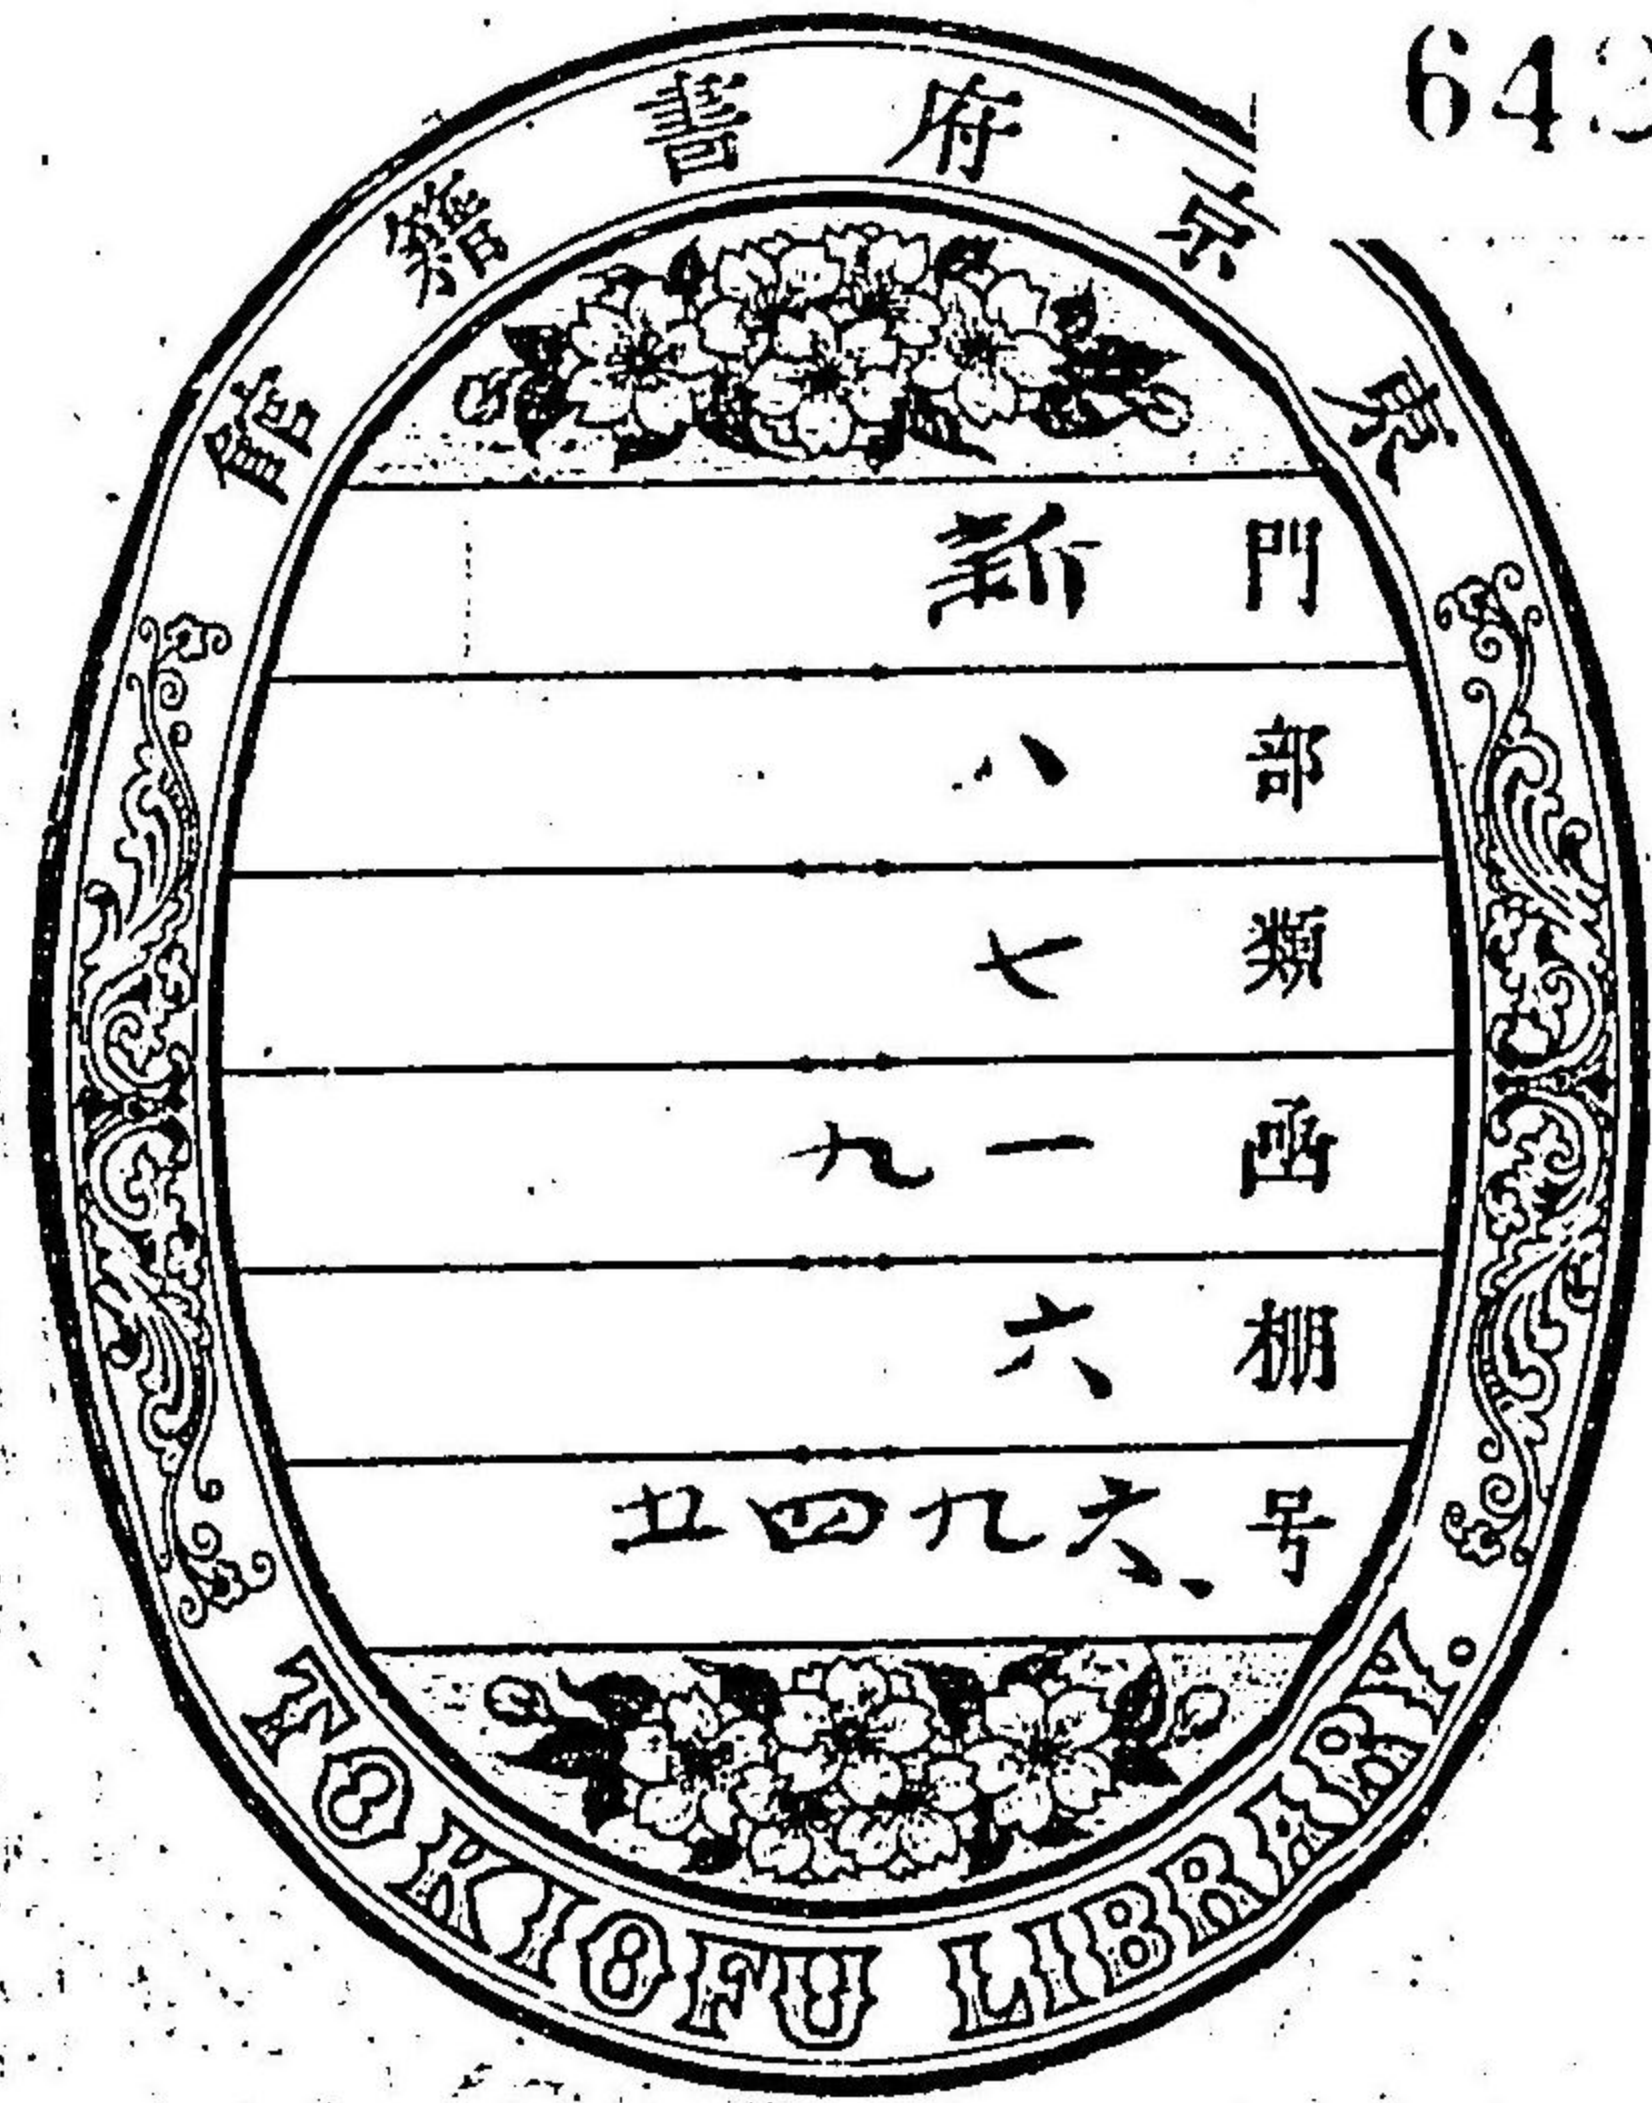 東京府書籍館
門 新
部 八
類 七
函 一九
棚 六
号 六九四五
TOKIOFU LIBRARY.